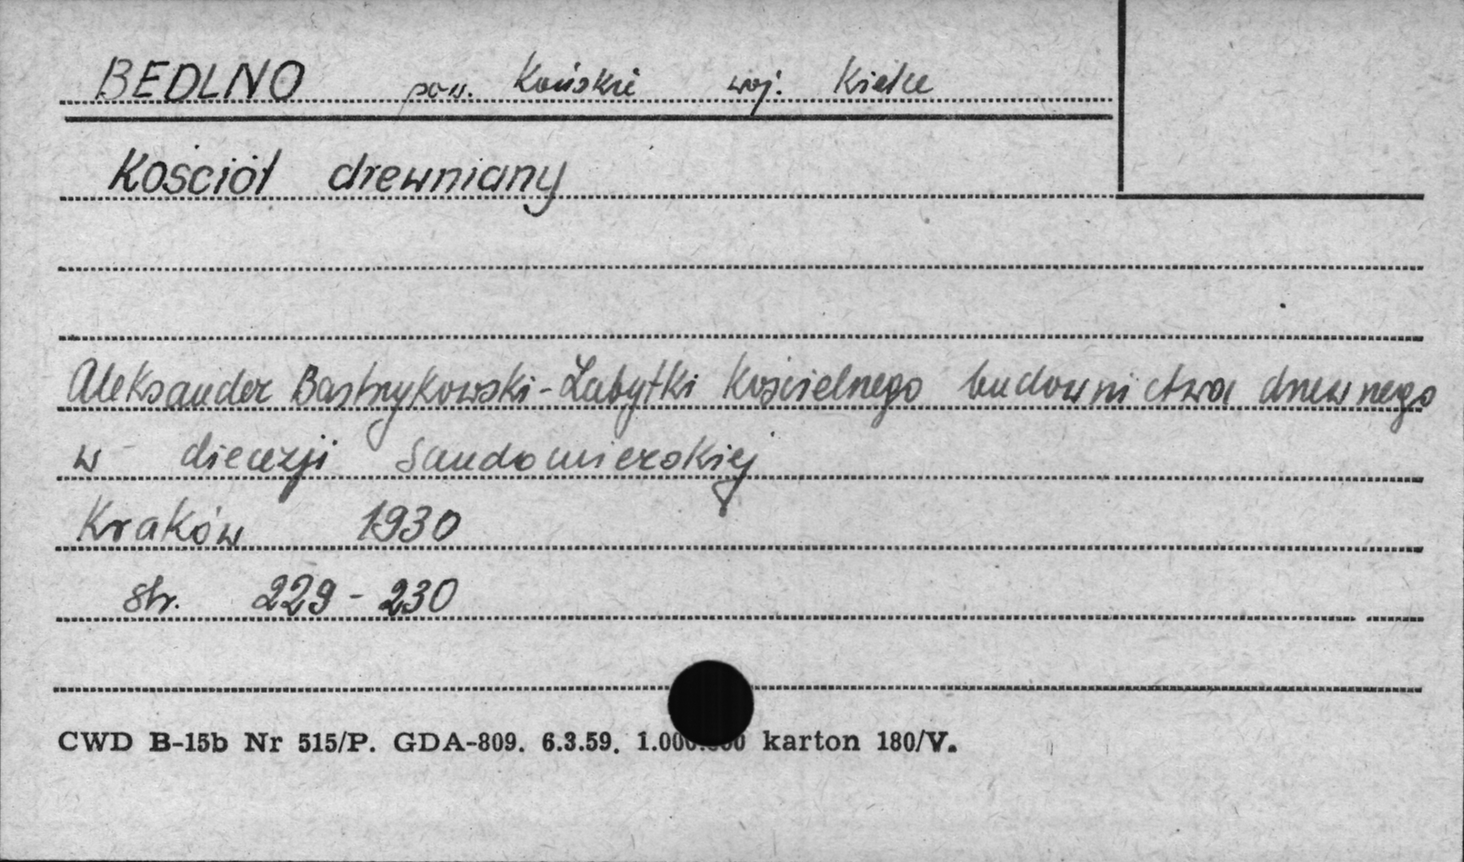 BEDLNO pow. Końskie woj. Kielce
Kościół drewniany
Aleksander Bastrzykowski - Zabytki kościelnego budownictwa drewnego
w diecezji Sandomierskiej
Kraków 1930
str. 229 - 230
CWD B-15b Nr 515/P. GDA-809. 6.3.59. 1.000.000 karton 180/V.